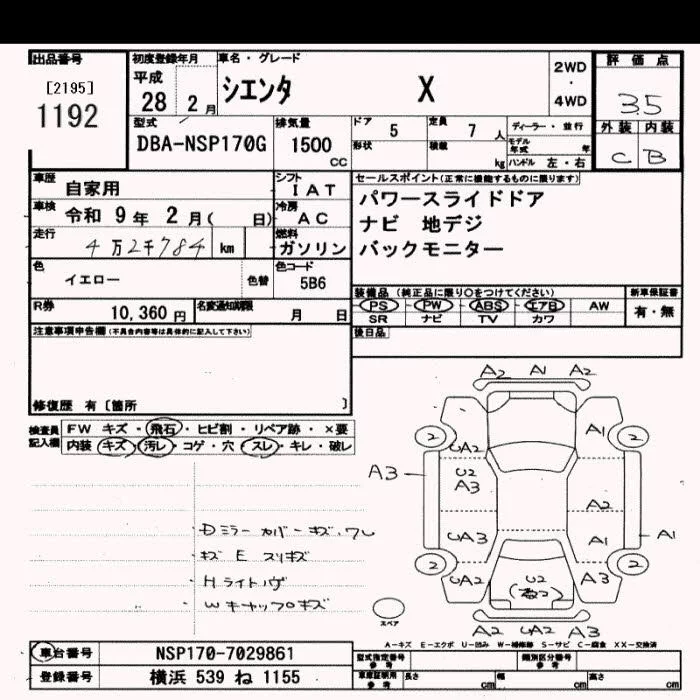 出品番号
[2195]
1192
初度登録年月
平成
28 2月
車名・グレード
シエンタ X
2WD
・
4WD
評価点
3.5
外装 内装
C B
型式
DBA-NSP170G
排気量
1500
CC
ドア 5
定員 7 人
形状
積載 kg
ディーラー・並行
モデル年式 年
ハンドル 左・右
車歴 自家用
シフト IAT
車検 令和 9年 2月( 日)
冷房 AC
走行 4万2千784 km
燃料 ガソリン
色 イエロー 色替
色コード 5B6
R券 10,360円
名変通知期限 月 日
セールスポイント(正常に機能するものに限ります)
パワースライドドア
ナビ 地デジ
バックモニター
装備品 (純正品に限り〇をつけてください)
PS PW ABS エアB AW
SR ナビ TV カワ
新車保証書
有・無
後日品
注意事項申告欄(不具合内容等は具体的に記入して下さい)
修復歴 有〔箇所 〕
検査員記入欄
FW キズ・飛石・ヒビ割・リペア跡・×要
内装 キズ・汚レ・コゲ・穴・スレ・キレ・破レ
Dミラーカバーキズ、ワレ
キズ E スリキズ
Hライトハゲ
Wキャップキズ
A2 A1 A2
2 2
UA2 A1
A3 U2 A3
A2
UA3 A1 A1
2 2
UA2 U2 A3
A2 UA2 A3
スペア
A-キズ E-エクボ U-凹み W-補修跡 S-サビ C-腐食 XX-交換済
車台番号 NSP170-7029861
登録番号 横浜 539 ね 1155
型式指定番号 参考
類別区分番号 参考
車庫証明用 参考
長さ cm 幅 cm 高さ cm